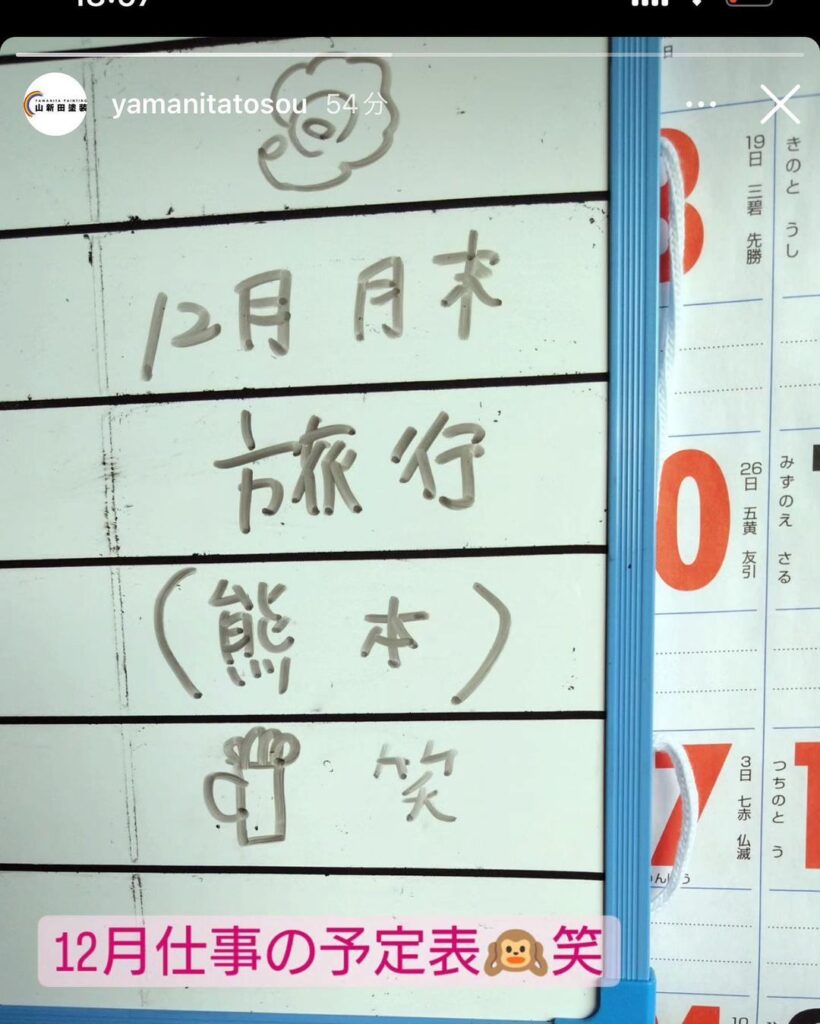 YAMANITA PAINTING
山新田塗装
yamanitatosou 54分
12月 月末
旅行
(熊本)
笑
12月仕事の予定表🙊笑
日
3
19日 三碧 先勝
きのと うし
0
26日 五黄 友引
みずのえ さる
7
3日 七赤 仏滅
つちのと う